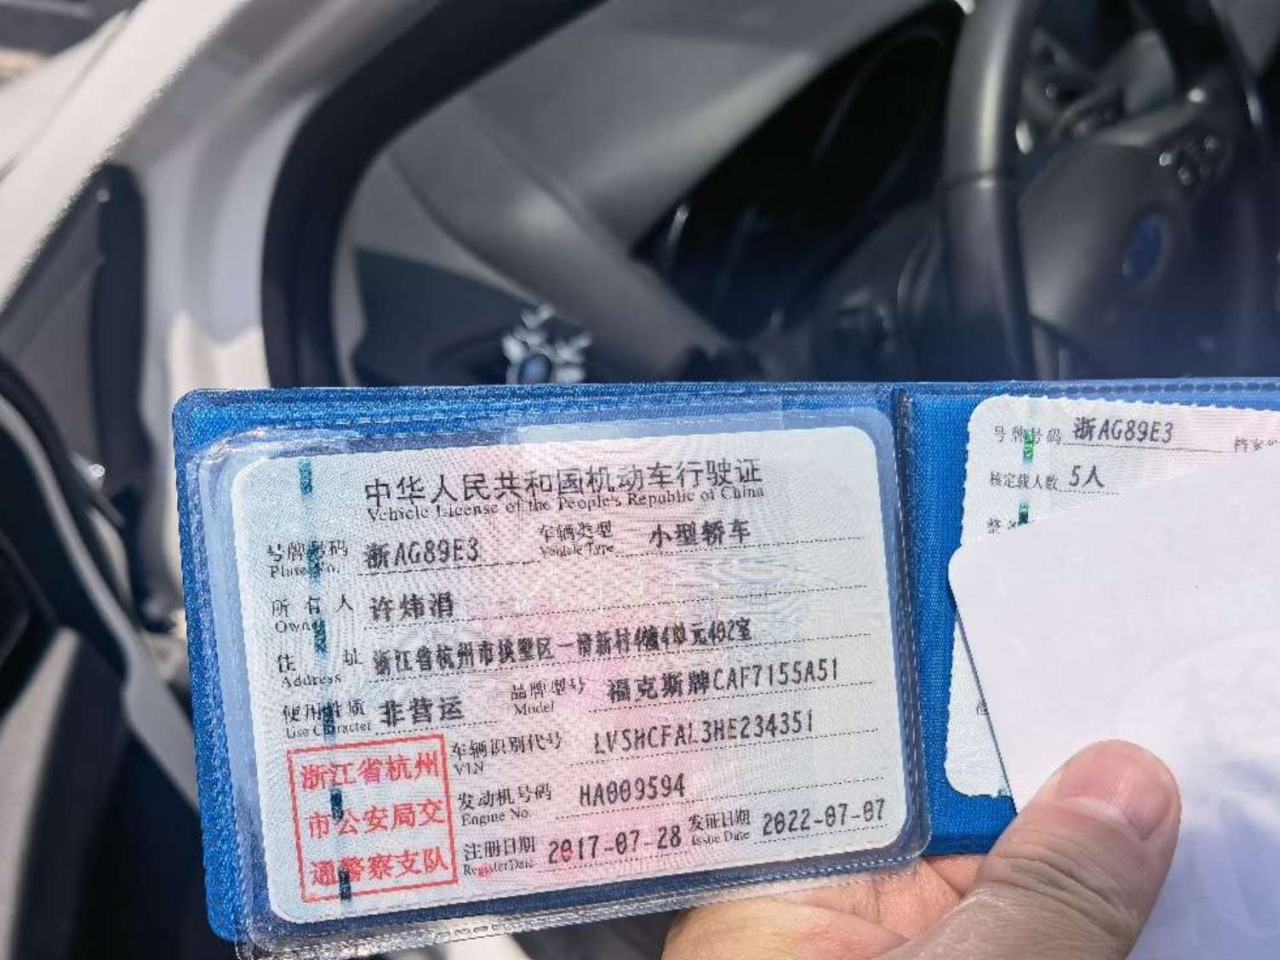 中华人民共和国机动车行驶证
Vehicle License of the People's Republic of China
号牌号码 浙AG89E3 车辆类型 小型轿车
Plate No. Vehicle Type
所有人 许炜涓
Owner
住址 浙江省杭州市拱墅区一清新村4幢4单元402室
Address
使用性质 非营运 品牌型号 福克斯牌CAF7155A51
Use Character Model
车辆识别代号 LVSHCFAL3HE234351
VIN
发动机号码 HA009594
Engine No.
注册日期 2017-07-28 发证日期 2022-07-07
Register Date Issue Date
浙江省杭州
市公安局交
通警察支队
号牌号码 浙AG89E3 档案
核定载人数 5人
整